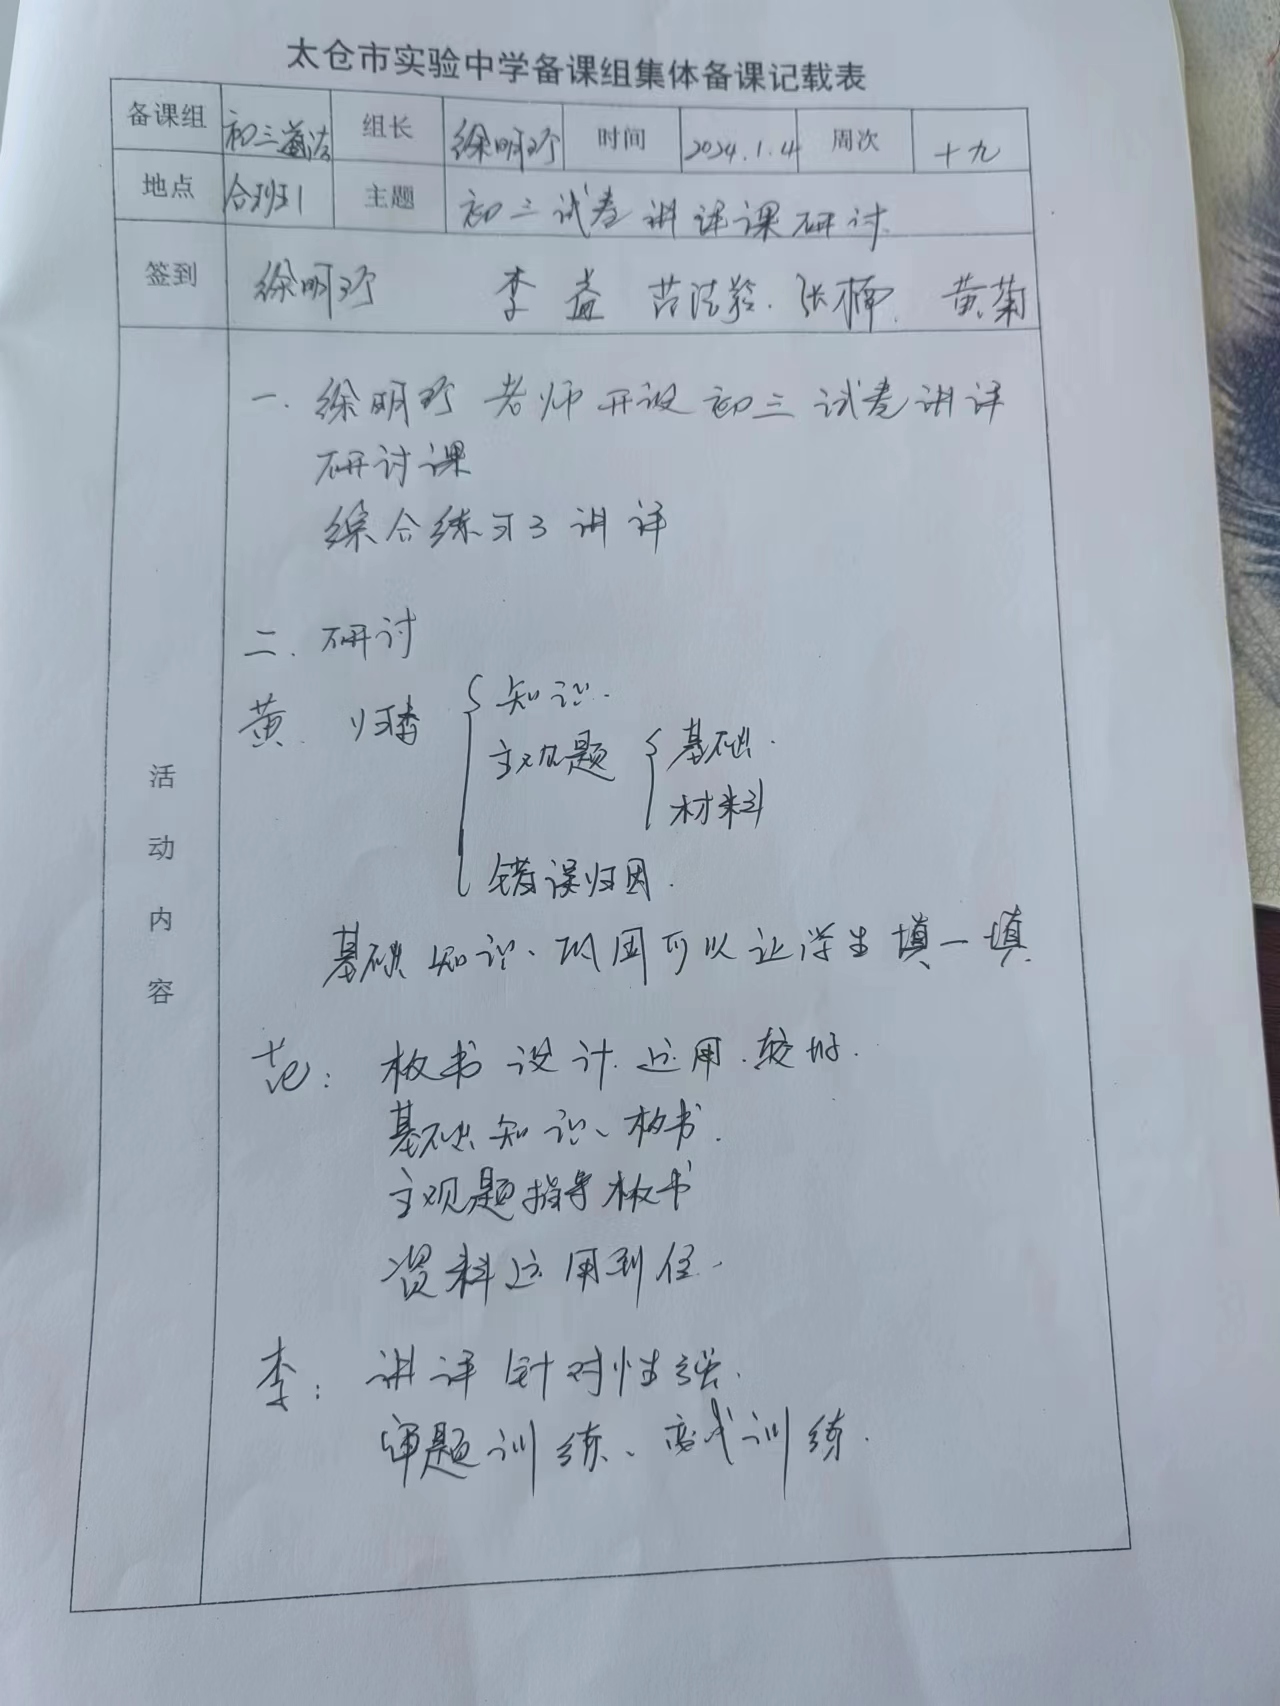 太仓市实验中学备课组集体备课记载表
备课组 初三道法 组长 徐明珍 时间 2024.1.4 周次 十九
地点 合班1 主题 初三试卷讲评课研讨
签到 徐明珍 李益 范洁 张楠 黄菊
活动内容
一. 徐明珍老师开设初三试卷讲评
研讨课
综合练习3讲评
二. 研讨
黄. 归类
知识.
主观题 基础.
材料
错误归因.
基础知识、 可以让学生填一填
范: 板书设计运用较好.
基础知识、板书.
主观题指导板书
资料运用到位.
李: 讲评针对性强.
审题训练、变式训练.